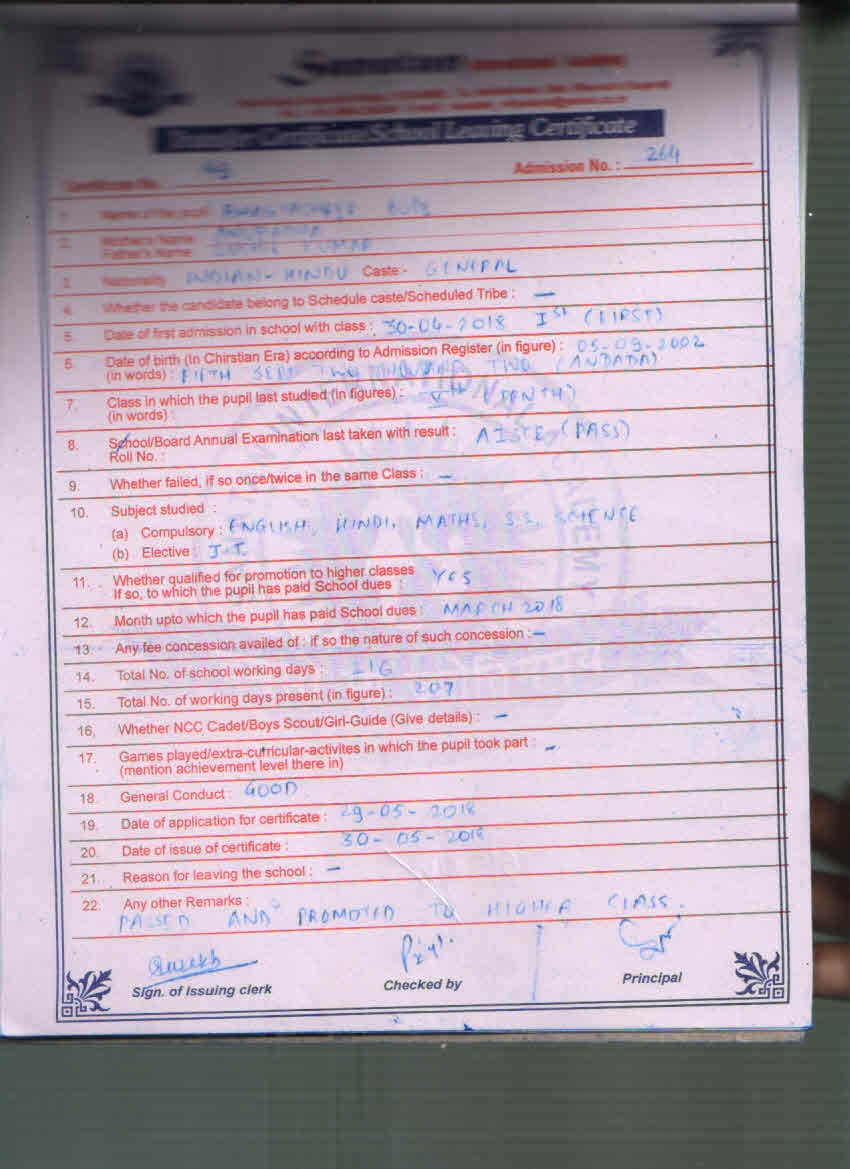 Transfer Certificate/School Leaving Certificate
Certificate No. 49 Admission No. : 264
1. Name of the pupil
2. Mother's Name
Father's Name KUMAR
3. Nationality INDIAN - HINDU Caste - GENERAL
4. Whether the candidate belong to Schedule caste/Scheduled Tribe : —
5. Date of first admission in school with class : 30-04-2018 Ist (FIRST)
6. Date of birth (In Chirstian Era) according to Admission Register (in figure) : 05-09-2002
(in words) : FIFTH SEPT TWO THOUSAND TWO (ANDADA)
7. Class in which the pupil last studied (in figures) : (TENTH)
(in words) :
8. School/Board Annual Examination last taken with result : (PASS)
Roll No. :
9. Whether failed, if so once/twice in the same Class : —
10. Subject studied :
(a) Compulsory : ENGLISH, HINDI, MATHS, S.S, SCIENCE
(b) Elective : I.T.
11. Whether qualified for promotion to higher classes YES
If so, to which the pupil has paid School dues :
12. Month upto which the pupil has paid School dues : MARCH 2018
13. Any fee concession availed of : if so the nature of such concession : —
14. Total No. of school working days :
15. Total No. of working days present (in figure) : 207
16, Whether NCC Cadet/Boys Scout/Girl-Guide (Give details) : —
17. Games played/extra-curricular-activites in which the pupil took part : —
(mention achievement level there in)
18. General Conduct : GOOD
19. Date of application for certificate : 29-05-2018
20. Date of issue of certificate : 30-05-2018
21. Reason for leaving the school : —
22. Any other Remarks :
PASSED AND PROMOTED TO HIGHER CLASS.
Sign. of Issuing clerk Checked by Principal
INTERNATIONAL ACADEMY